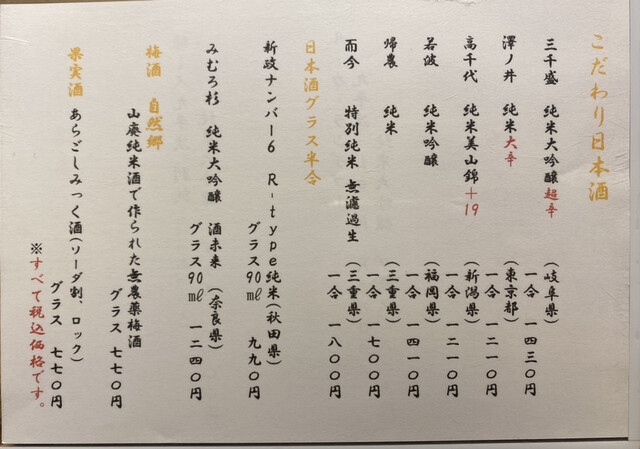 こだわり日本酒
三千盛 純米大吟醸 超辛 (岐阜県)
一合 一四三〇円
澤ノ井 純米大辛 (東京都)
一合 一二一〇円
高千代 純米美山錦+19 (新潟県)
一合 一二一〇円
若波 純米吟醸 (福岡県)
一合 一四一〇円
帰農 純米 (三重県)
一合 一七〇〇円
而今 特別純米 無濾過生 (三重県)
一合 一八〇〇円
日本酒グラス半合
新政ナンバー6 R-type純米(秋田県)
グラス90ml 九九〇円
みむろ杉 純米大吟醸 酒未来 (奈良県)
グラス90ml 一二四〇円
梅酒 自然郷
山廃純米酒で作られた無農薬梅酒
グラス 七七〇円
果実酒 あらごしみっく酒(ソーダ割、ロック)
グラス 七七〇円
※すべて税込価格です。